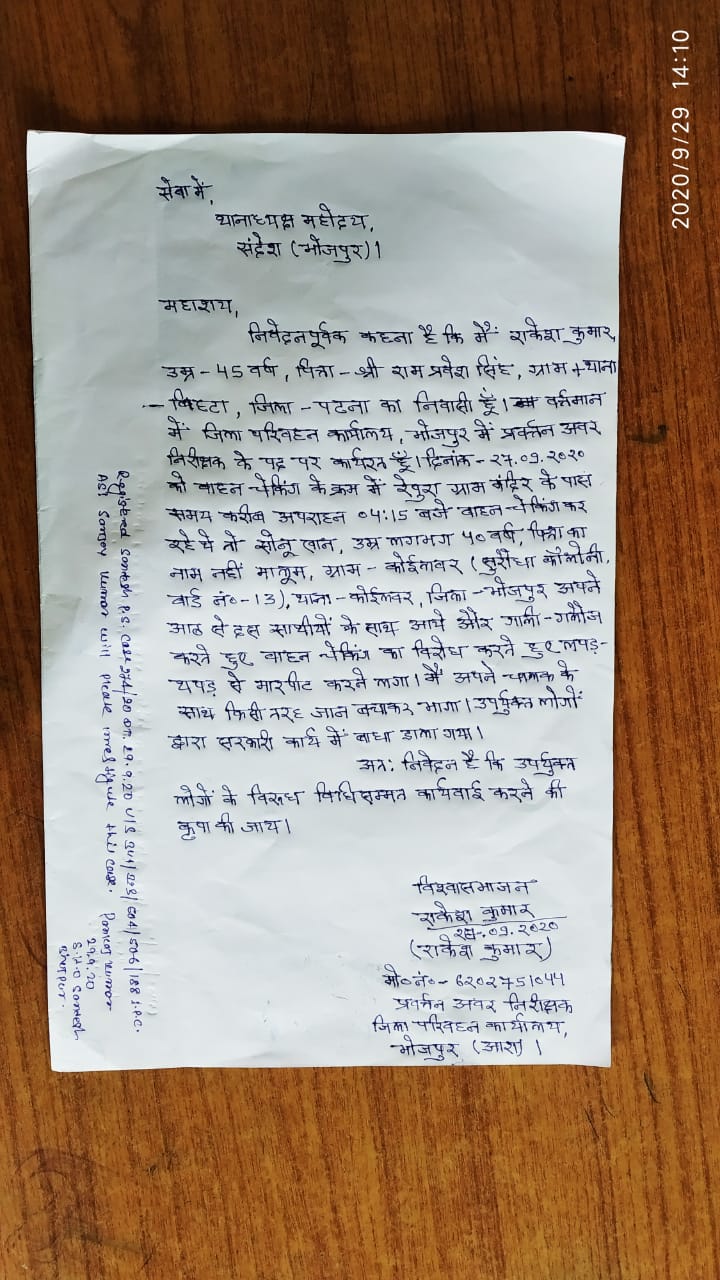 2020/9/29 14:10
सेवा में,
थानाध्यक्ष महोदय,
संदेश (भोजपुर)।
महाशय,
निवेदनपूर्वक कहना है कि मैं राकेश कुमार,
उम्र - 45 वर्ष, पिता - श्री राम प्रवेश सिंह, ग्राम + थाना
- बिहटा, जिला - पटना का निवासी हूँ। वर्तमान
में जिला परिवहन कार्यालय, भोजपुर में प्रवर्तन अवर
निरीक्षक के पद पर कार्यरत हूँ। दिनांक - 27.09.2020
को वाहन चेकिंग के क्रम में रेपुरा ग्राम मंदिर के पास
समय करीब अपराहन 04:15 बजे वाहन चेकिंग कर
रहे थे तो सोनू खान, उम्र लगभग 40 वर्ष, पिता का
नाम नहीं मालूम, ग्राम - कोईलवर (सुरौंधा कॉलोनी,
वार्ड नं०-13), थाना - कोईलवर, जिला - भोजपुर अपने
आठ से दस साथीयों के साथ आये और गाली-गलौज
करते हुए वाहन चेकिंग का विरोध करते हुए लपड़-
थपड़ से मारपीट करने लगा। मैं अपने चालक के
साथ किसी तरह जान बचाकर भागा। उपर्युक्त लोगों
द्वारा सरकारी कार्य में बाधा डाला गया।
अत: निवेदन है कि उपर्युक्त
लोगों के विरुध विधिसम्मत कार्यवाई करने की
कृपा की जाय।
विश्वासभाजन
राकेश कुमार
.09.2020
(राकेश कुमार)
मो०नं०- 6202751044
प्रवर्तन अवर निरीक्षक
जिला परिवहन कार्यालय,
भोजपुर (आरा)।
Registered Sandesh P.S. Case 274/20 on 29.9.20 U/S 341/323/504/506/188 I.P.C.
ASI Sanjay Kumar will please investigate this case.
Kumar
29.9.20
S.H.O Sandesh
Bhojpur.